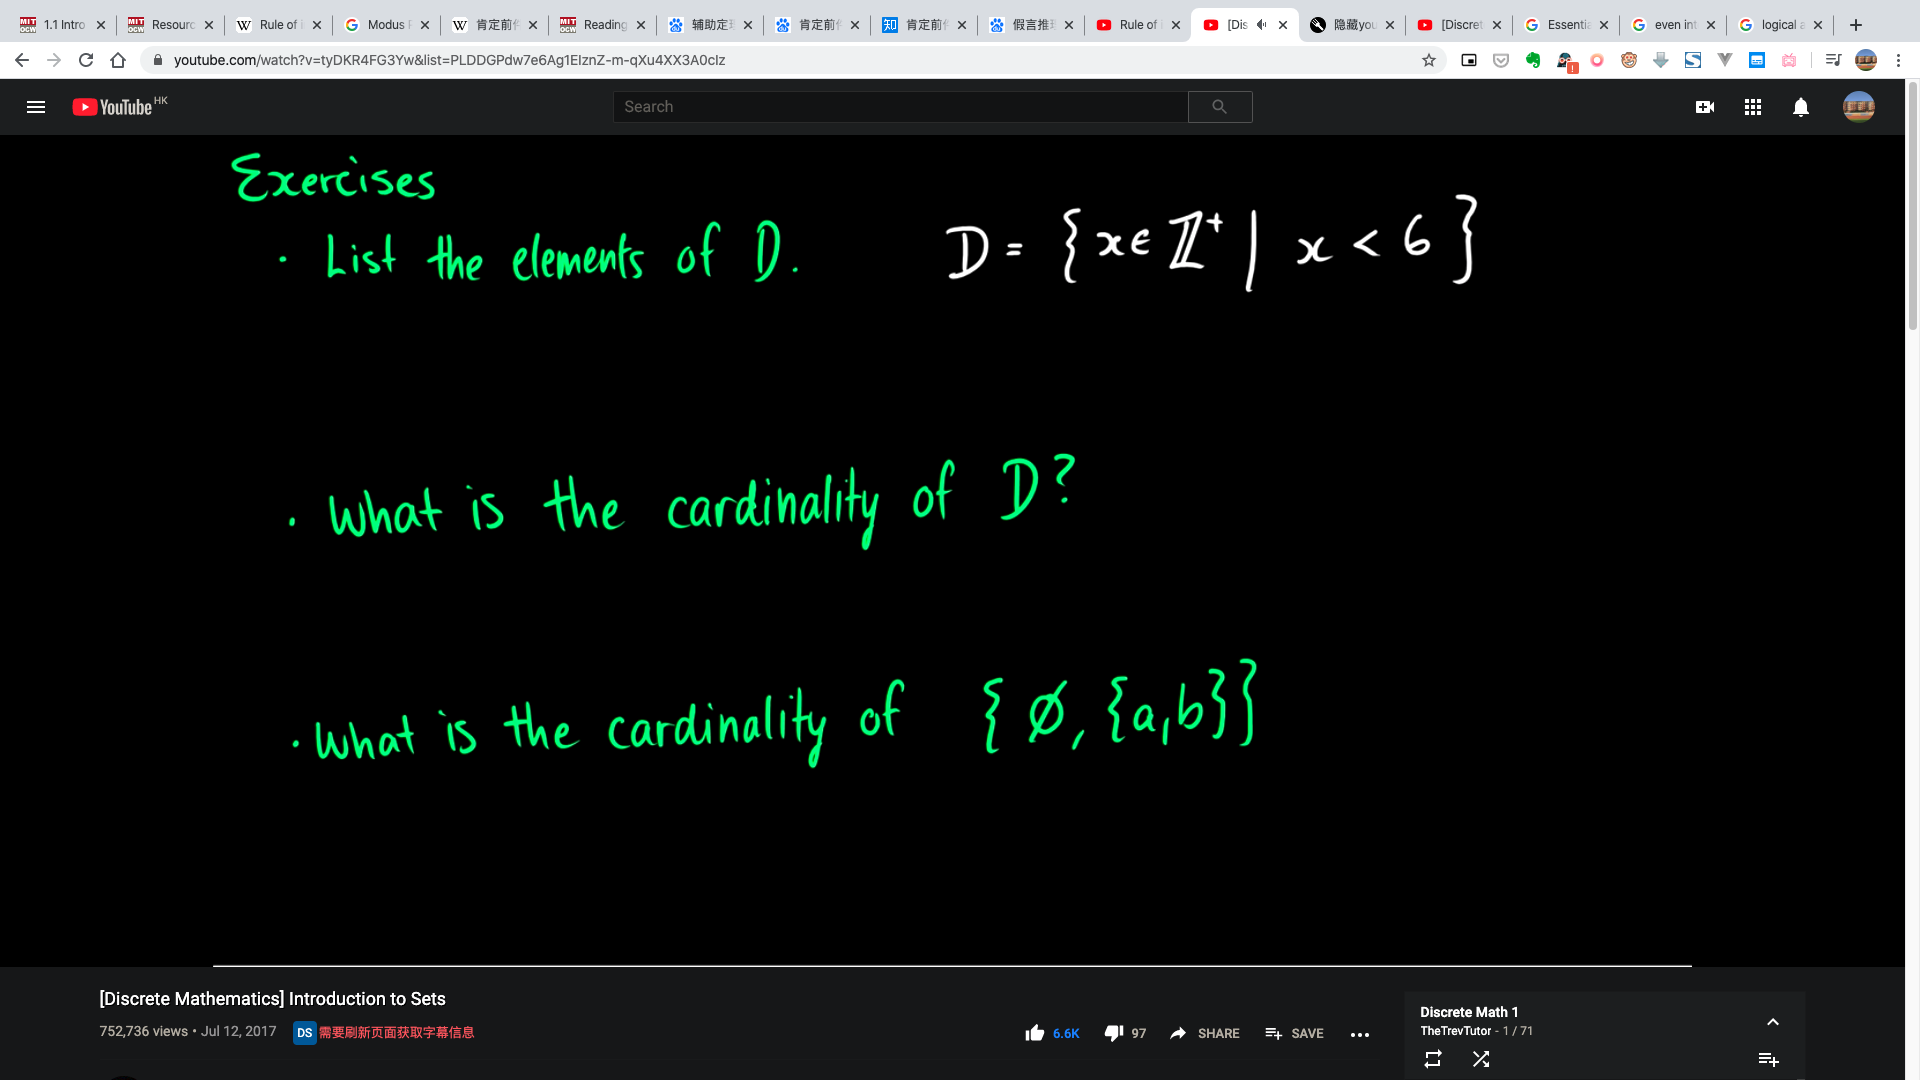 1.1 Intro
Resourc
Rule of i
Modus P
肯定前件
Reading
辅助定理
肯定前件
肯定前件
假言推理
Rule of i
[Dis
隐藏you
[Discret
Essentia
even int
logical a
youtube.com/watch?v=tyDKR4FG3Yw&list=PLDDGPdw7e6Ag1EIznZ-m-qXu4XX3A0cIz
YouTube HK
Search
Exercises
• List the elements of D. D = { x ∈ ℤ⁺ | x < 6 }
• What is the cardinality of D?
• What is the cardinality of { ∅, {a,b}}
[Discrete Mathematics] Introduction to Sets
752,736 views • Jul 12, 2017 DS 需要刷新页面获取字幕信息
6.6K 97 SHARE SAVE
Discrete Math 1
TheTrevTutor - 1 / 71